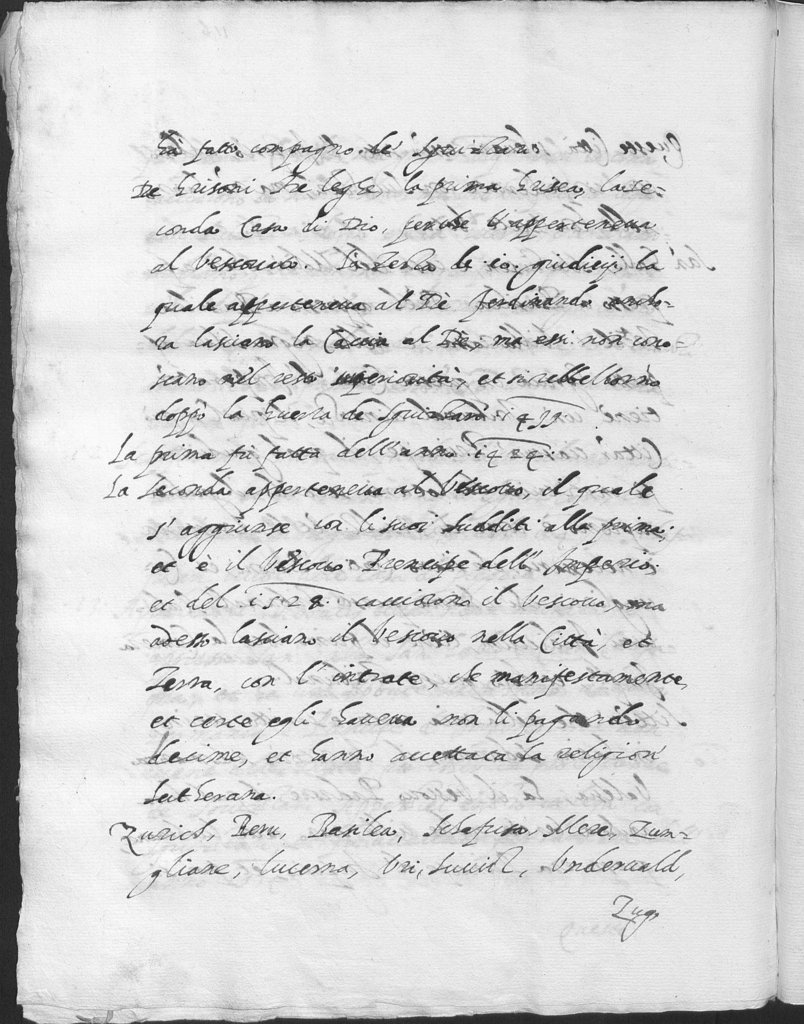 hà fatto compagno de' Sguizzari
De Grisoni tre leghe, la prima Grisea, la se=
conda Casa di Dio, perche s'apperteneua
al Vescouato. La terza de .10. giudicij, la
quale apperteneua al Rè Ferdinando, ancho=
ra lasciano la Caccia al Rè, ma essi non cono=
scano nel resto superiorità, et si rebellorno
doppo la Guerra de Sguizzari 1499.
La prima fù fatta dell'anno .1424.
La seconda apperteneua al Vescouo, il quale
s'aggiunse con li suoi sudditi alla prima,
et è il Vescouo Prencipe dell' Imperio.
et del .1528. cacciorono il Vescouo, ma
adesso lasciano il Vescouo nella Città, et
Terra, con l'intrate, che manifestamente,
et certe egli haueua non li pagando
decime, et hanno accettata la religion
lutherana.
Zurich, Bern, Basilea, Schafusa, Mere, Zun=
gliane, Lucerna, Vri, Suuitz, Vnderuald,
Zugo